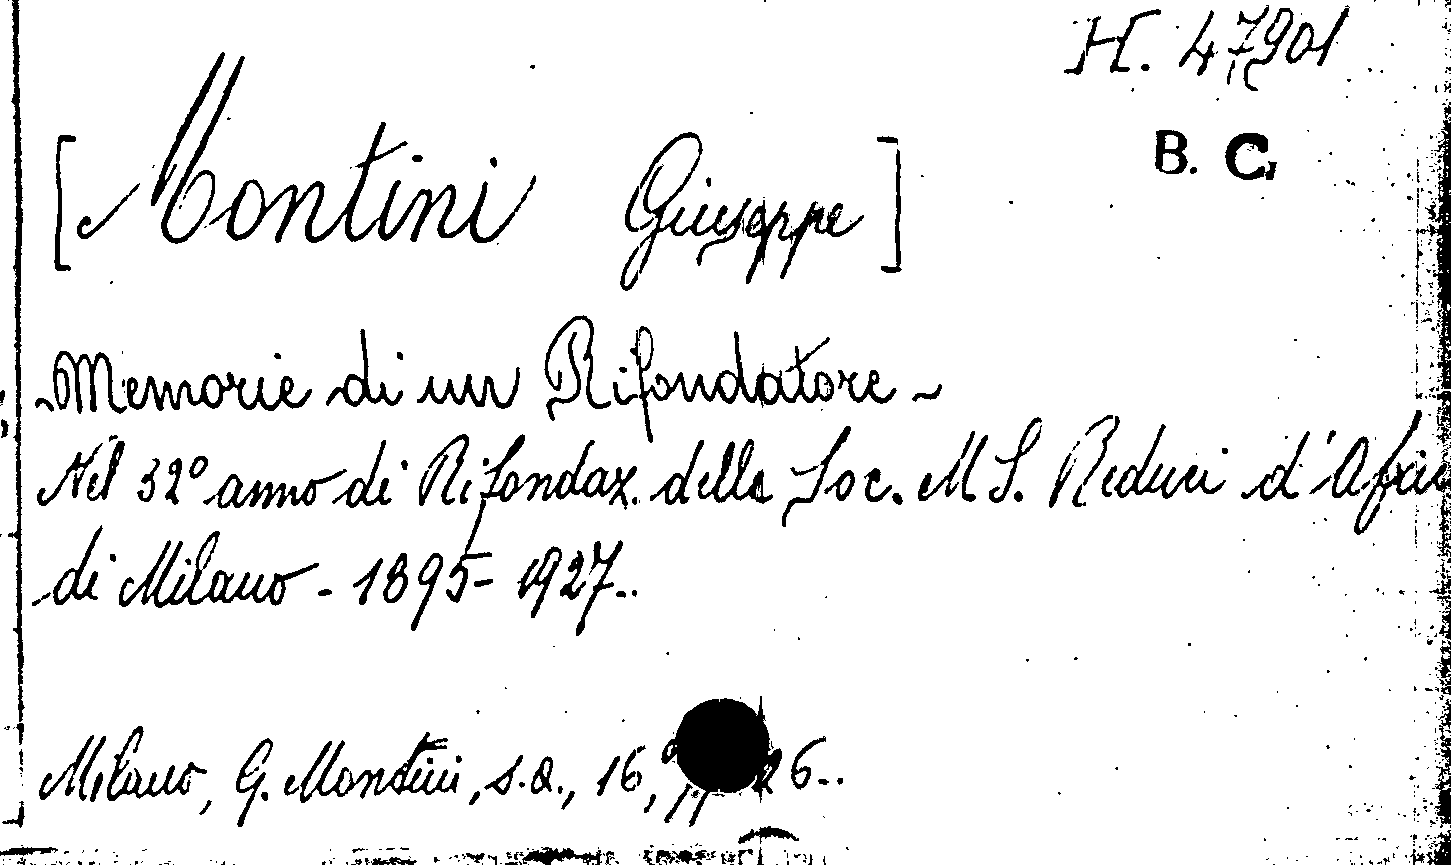 H. 47901
B. C.
[Montini Giuseppe]
Memorie di un Rifondatore -
Nel 32° anno di Rifondaz. della Soc. M S. Reduci d'Afric
di Milano - 1895 - 1927..
Milano, G. Montini, s.a., 16,° pp. 26..